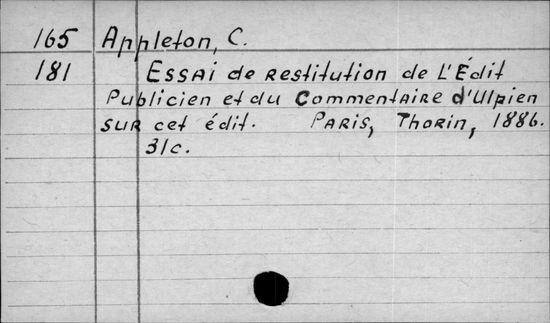 165 Appleton, C.
181 Essai de restitution de L'Édit
Publicien et du Commentaire d'Ulpien
sur cet édit. Paris, Thorin, 1886.
31c.